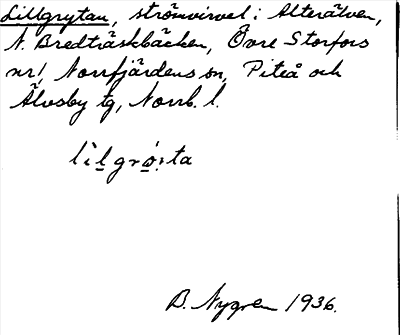 Lillgrytan, strömvirvel i Alterälven,
N. Bredträskbäcken, Övre Storfors
nr 1, Norrfjärdens sn, Piteå och
Älvsby tg, Norrb. l.
B. Nygren 1936.